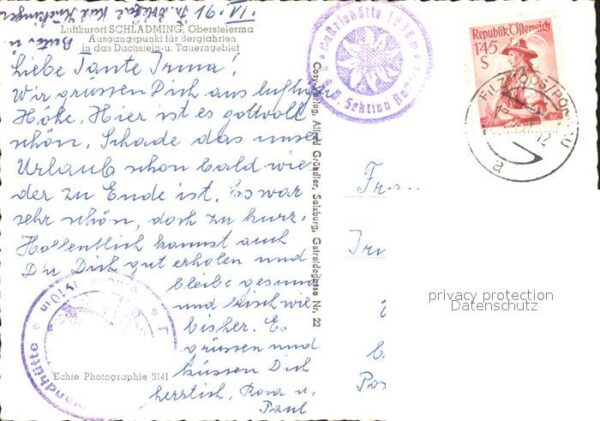 Luftkurort SCHLADMING, Obersteierma
Ausgangspunkt für Bergfahrten
in das Dachstein-u. Tauerngebiet
Liebe Tante Irma!
Wir grüssen Dich aus luftiger
Höhe. Hier ist es gottvoll
schön. Schade das unser
Urlaub schon bald wie
der zu Ende ist. Es war
sehr schön, doch zu kurz.
Hoffentlich kannst auch
Du Dich gut erholen und
bleibe gesund
und frisch wie
bisher. Es
grüssen und
küssen Dich
herzlich, Rosa u.
Paul
Echte Photographie 3141
Copyr. Verlag. Alfred Gründler, Salzburg, Getreidegasse Nr. 22
Sektion
Republik Österreich
1'45
S
FILZMOOS/PONGAU
12
a
privacy protection
Datenschutz